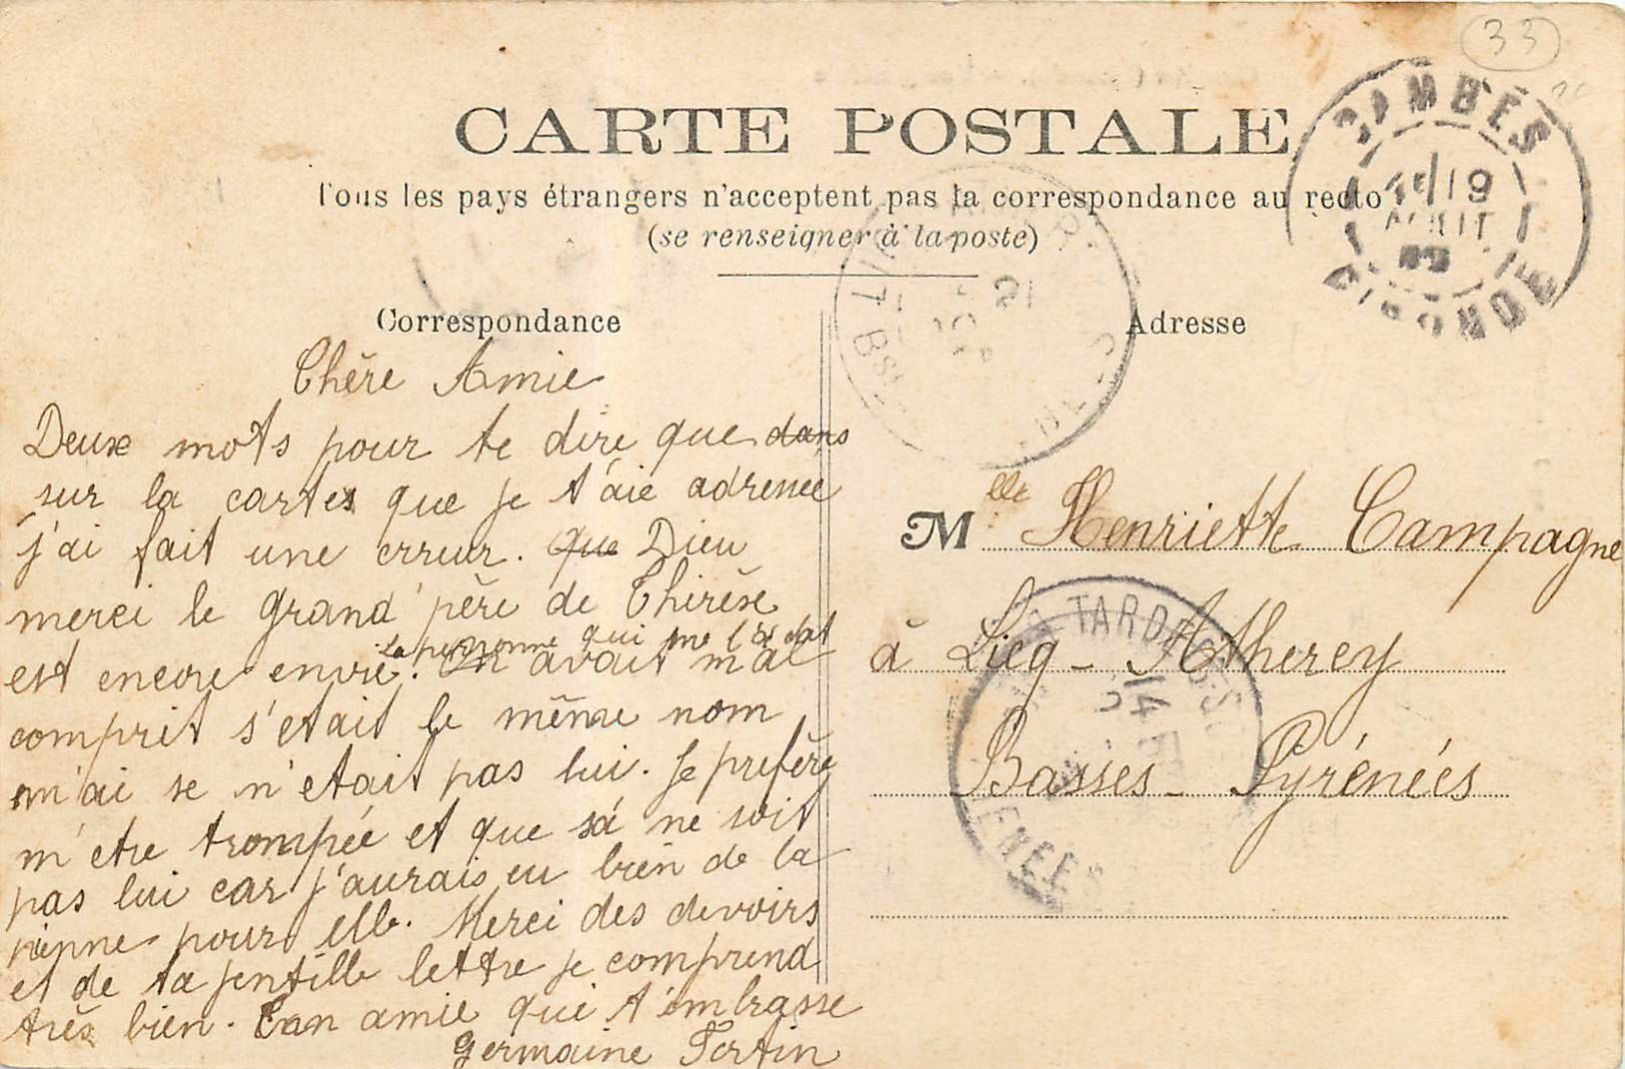 33
CARTE POSTALE
Tous les pays étrangers n'acceptent pas la correspondance au recto
(se renseigner à la poste)
CAMBES
19
AOUT
09
GIRONDE
Correspondance
Chère Amie
Deux mots pour te dire que dans
sur la cartes que je t'aie adressée
j'ai fait une erreur. que Dieu
merci le grand père de Thirèse
est encore envie. On avait mal
la personne qui me l'a dit
comprit s'etait le même nom
m'ai se n'etait pas lui. Je prefère
m'etre trompée et que sá ne soit
pas lui car j'aurais eu bien de la
pienne pour elle. Merci des devoirs
et de ta jentille lettre je comprend
très bien. Ton amie qui t'embrasse
Germaine Fortin
Adresse
Melle Henriette Campagne
à Licq-Atherey
Basses-Pyrénées
TARDETS
14
ENEES